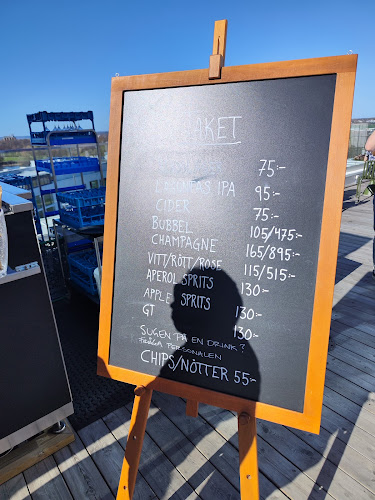 AKET
75:-
IPA 95:-
CIDER 75:-
BUBBEL 105/475:-
CHAMPAGNE 165/895:-
VITT/RÖTT/ROSE 115/515:-
APEROL SPRITS 130:-
APPLE SPRITS 130:-
GT 130:-
SUGEN PÅ EN DRINK?
FRÅGA PERSONALEN
CHIPS/NÖTTER 55:-